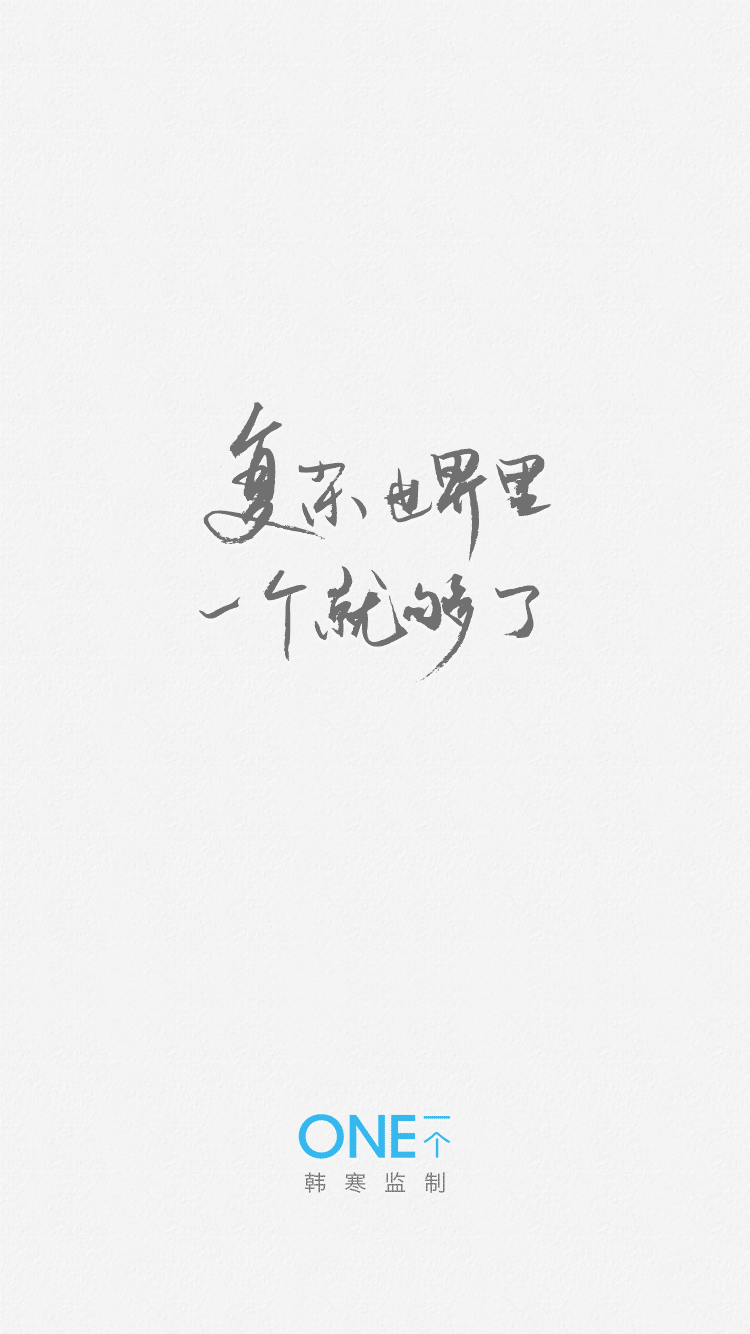 复杂世界里
一个就够了
ONE一个
韩寒监制